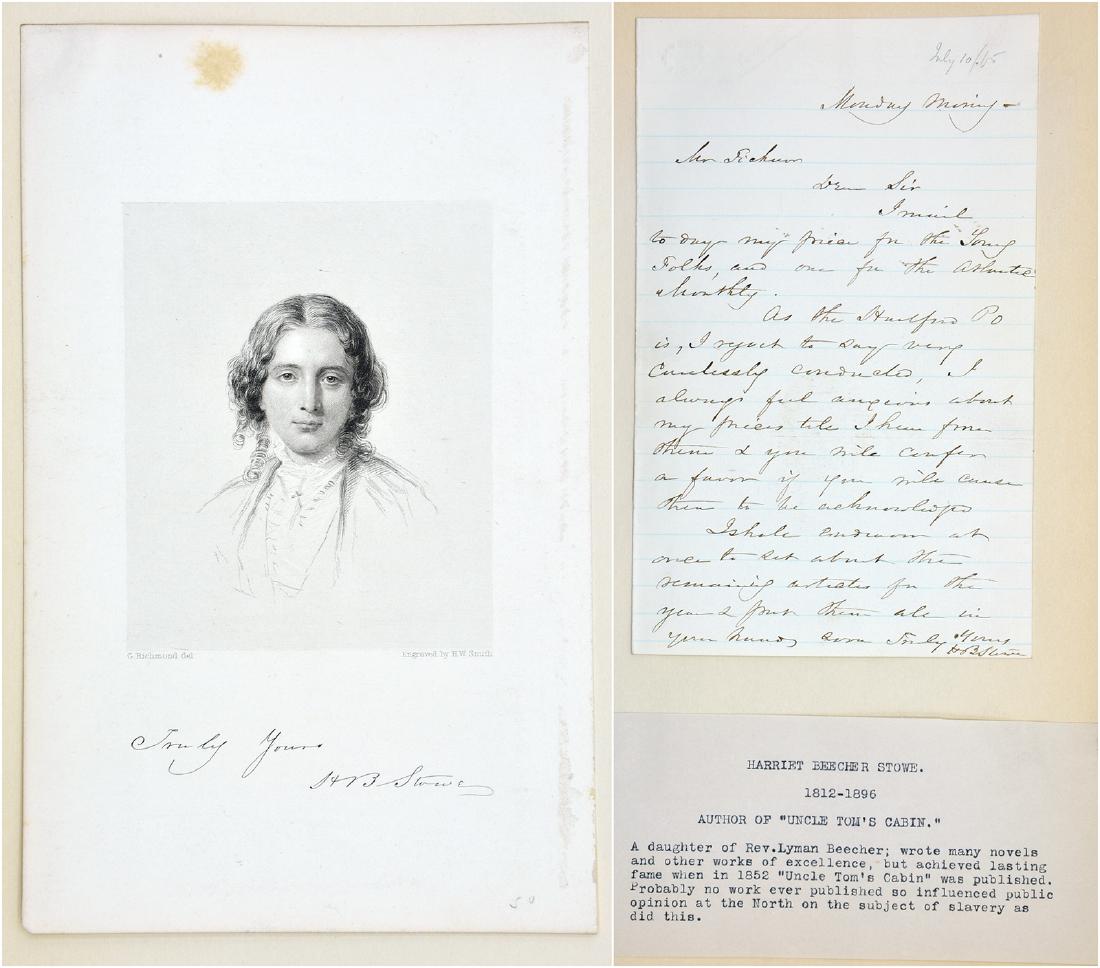 G. Richmond del
Engraved by H.W. Smith
Truly Yours
H B Stowe
50
July 10/65
Monday Morning –
Mr Ticknor
Dear Sir
I mail
to day my piece for the Young
Folks, and one for the Atlantic
Monthly.
As the Hartford PO
is, I regret to say very
carelessly conducted, I
always feel anxious about
my pieces till I hear from
them & you will confer
a favor if you will cause
them to be acknowledged
I shall endeavor at
once to set about the
remaining articles for the
year & put them all in
your hands soon Truly Yours
H B Stowe
HARRIET BEECHER STOWE.
1812-1896
AUTHOR OF "UNCLE TOM'S CABIN."
A daughter of Rev.Lyman Beecher; wrote many novels
and other works of excellence, but achieved lasting
fame when in 1852 "Uncle Tom's Cabin" was published.
Probably no work ever published so influenced public
opinion at the North on the subject of slavery as
did this.